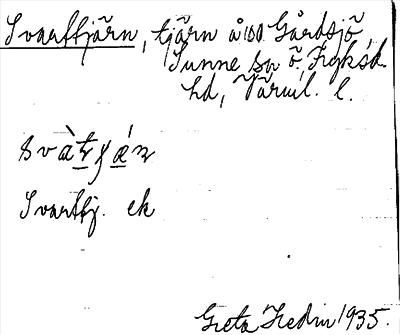 Svarttjärn, tjärn å 100 Gårdsjö,
Sunne sn Ö. Fryksd.
hd, Värml. l.
svàt̠ʃǽn
Svarttj. ek
Greta Hedin 1935.